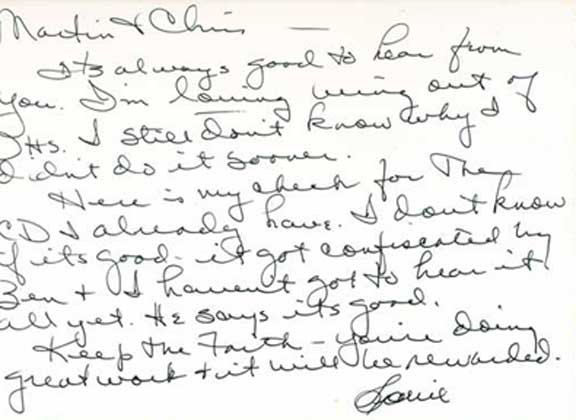 Martin & Chris —
Its always good to hear from
you. I'm loving being out of
PHS. I still don't know why I
didn't do it sooner.
Here is my check for The
CD I already have. I don't know
if its good - it got confiscated by
Ben & I haven't got to hear it
all yet. He says its good.
Keep the Faith - you're doing
great work & it will be rewarded.